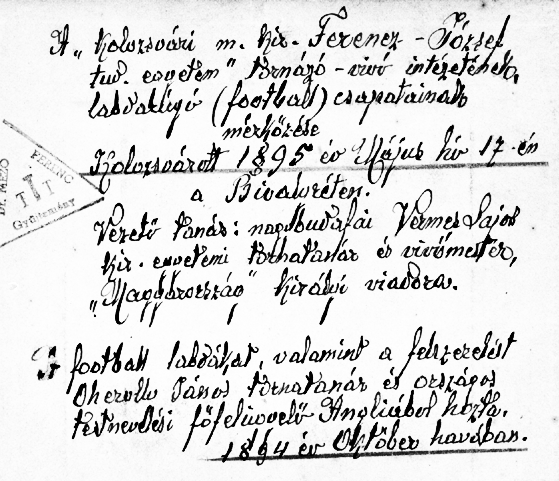 A „Kolozsvári m. kir. Ferencz-József
tud. egyetem” tornázó-vivó intézetének,
labdarúgó (football) csapatainak
mérkőzése
Kolozsvárott 1895 év Május hó 17-én
a Bivalyréten.
Vezető tanár: nagybudafai Vermes Lajos
kir. egyetemi tornatanár és vivómester,
„Magyarország” királyi viadora.
A football labdákat, valamint a felszerelést
Oheroly János tornatanár és országos
testnevelési főfelügyelő Angliából hozta,
1894 év Október havában.
Dr. MEZŐ
FERENC
T I T
Gyűjtemény